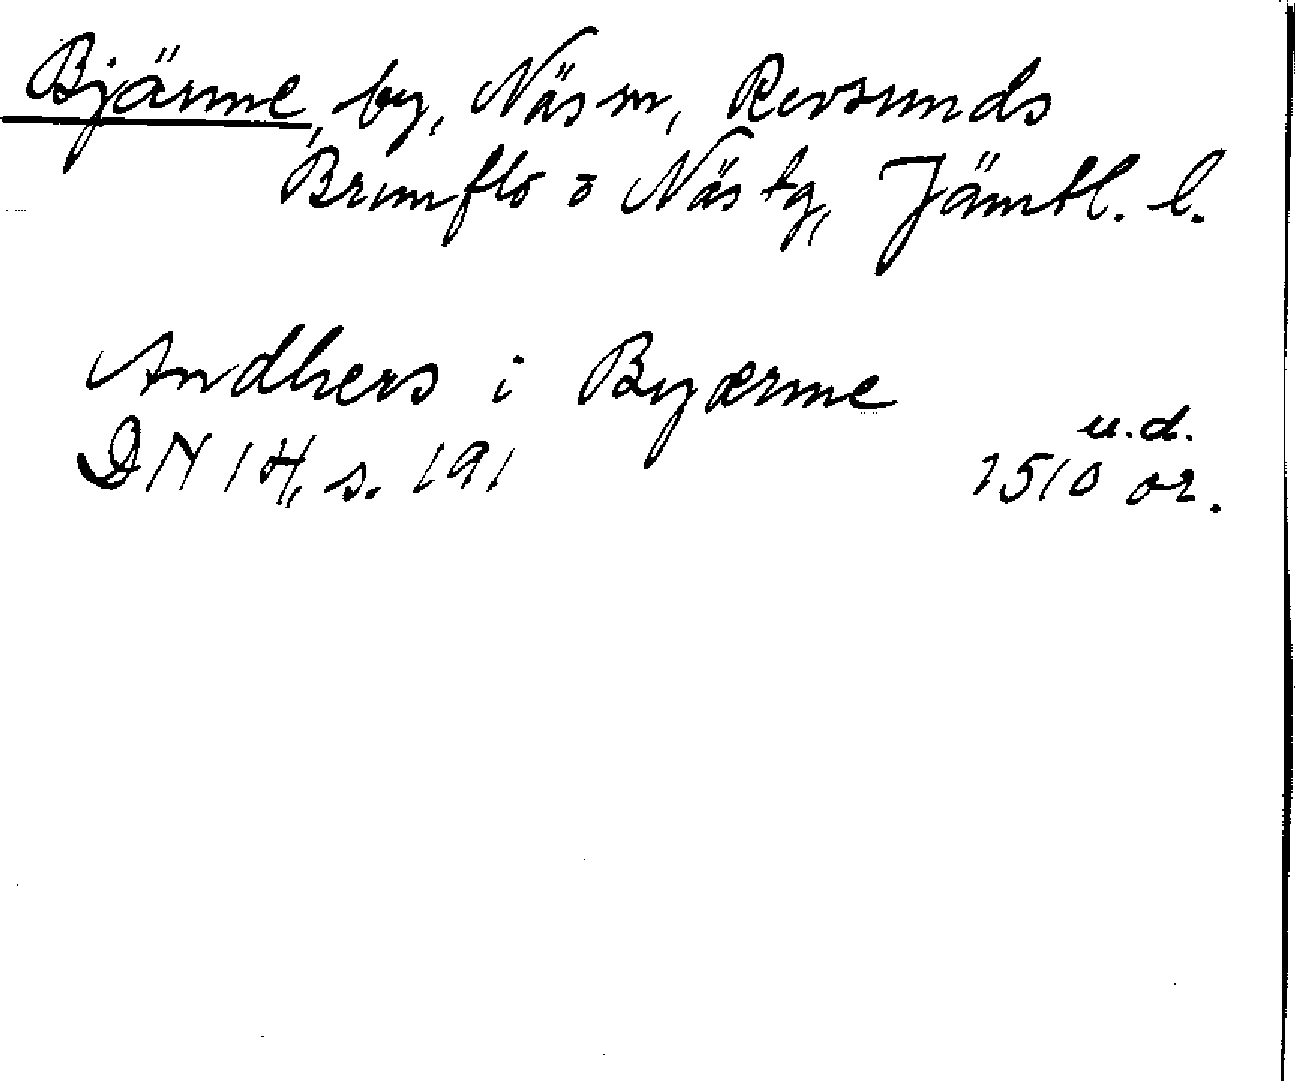 Bjärme, by, Näs sn, Revsunds
Brunflo o Näs tg, Jämtl. l.
Andhers i Byærme
u.d.
DN 14, s. 191 1510 or.